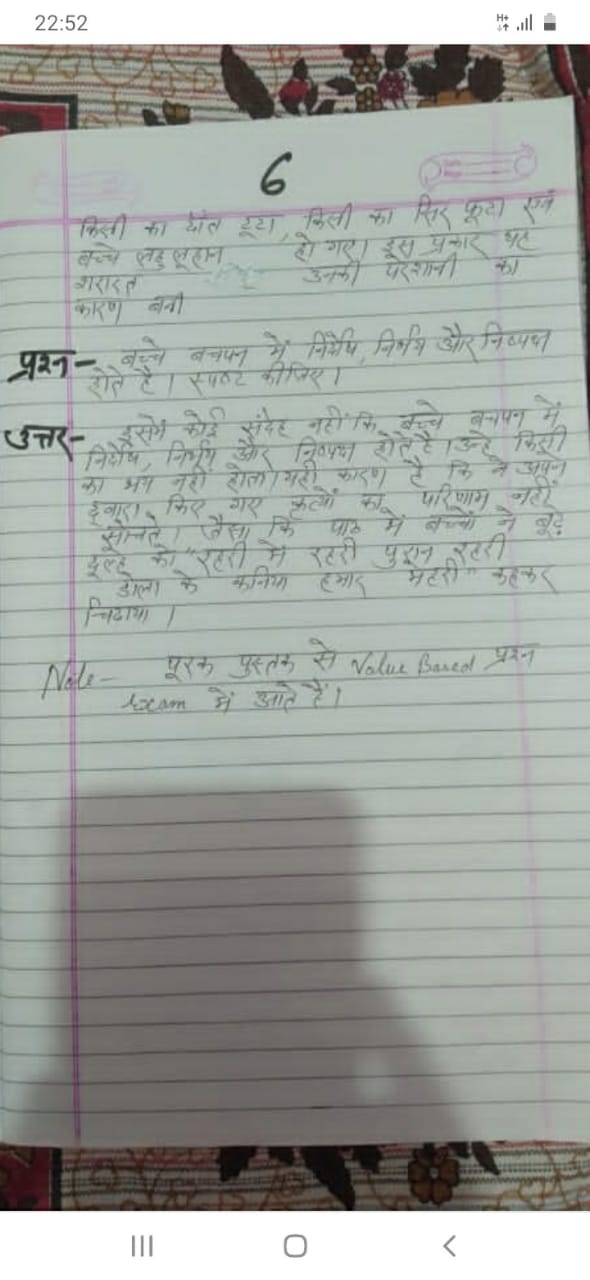 22:52
6
किसी का दाँत टूटा, किसी का सिर फूटा एवं
बच्चे लहु लूहान हो गए। इस प्रकार यह
शरारत उनकी परेशानी का
कारण बनी
प्रश्न- बच्चे बचपन में निर्दोष, निर्भय और निष्पक्ष
होते है। स्पष्ट कीजिए।
उत्तर- इसमें कोई संदेह नहीं कि बच्चे बचपन में
निर्दोष, निर्भय और निष्पक्ष होते है। उन्हें किसी
का भय नहीं होता। यही कारण है कि वे अपने
द्वारा किए गए कृत्यों का परिणाम नहीं
सोचते। जैसा कि पाठ में बच्चों ने बूढ़े
दूल्हे को "रहरी में रहरी पुरान रहरी
डोला के कनिया हमार मेहरी" कहकर
चिढाया।
Note- पूरक पुस्तक से Value Based प्रश्न
Exam में आते हैं।